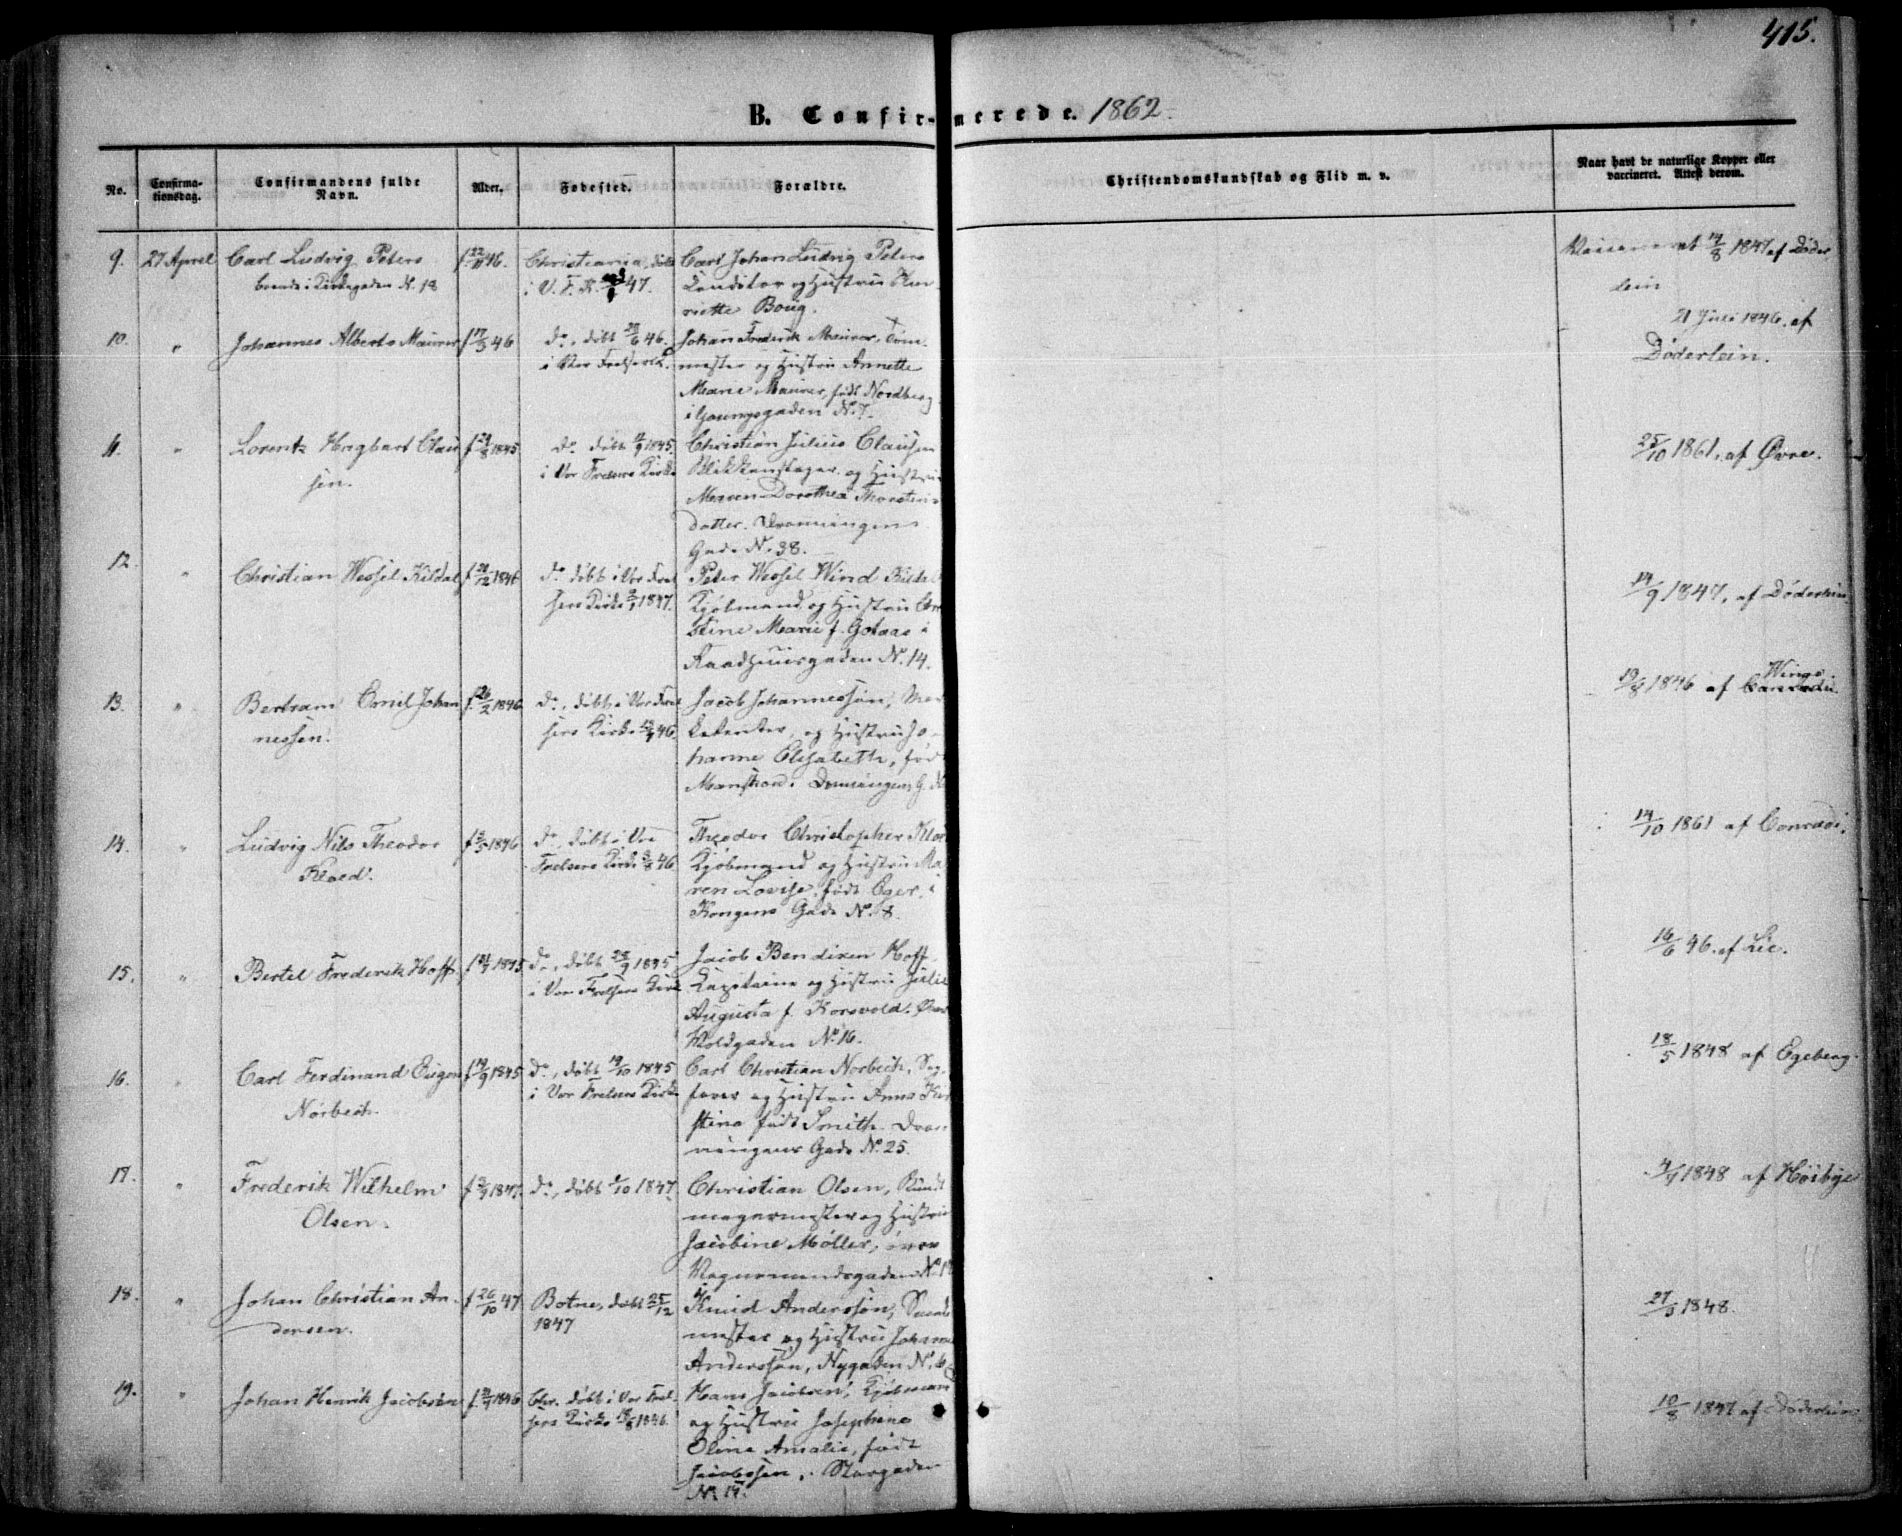 415.
B. Confirmerede. 1862.
No.
Confirmationsdag.
Confirmandens fulde Navn.
Alder.
Fødested.
Forældre.
Christendomskundskab og Flid m. v.
Naar havt de naturlige Kopper eller vaccineret. Attest derom.
9. 27 April Carl Ludvig Peters
boende i Kirkegaden N. 18
f 22/11 46.
Christiania, døbt
i V. F. K. 47.
Carl Johan Ludvig Peters
Conditor og Hustru Hen-
riette Boug.
14/8 1847 af Døder
lein
10. " Johannes Alberts Maurer
f 17/3 46
Do, døbt 28/6 46.
i Vor Frelsers K.
Johan Frederik Maurer, Tøm-
mester og Hustru Annette
Marie Maurer, født Nordberg
N. 7.
21 Juli 1846. af
Døderlein.
11. " Lorentz Hagbart Clau
sen.
f 29/8 1845
Do døbt 1845.
i Vor Frelsers Kirke
Christian Julius Clausen
Blikkenslager og Hustru
Maren Dorothea Thorsten
datter. Dronningens
Gade N. 38.
25/10 1861, af Øvre.
12. " Christian Wessel Kildal
f 20/12 1846
Do døbt i Vor Frel
sers Kirke 1847.
Peter Wessel Wind Kildal
Kjøbmand og Hustru Chri
stine Marie f. Gotaas i
Raadhuusgaden N. 14.
14/9 1847, af Døderlein
13. " Bertram Emil Johan
nessen.
f. 26/2 1846
Do, døbt i Vor Frel
sers Kirke 46.
Jacob Johannessøn, Mar
ketenter, og Hustru Jo
hanne Elisabeth, født
Dronningens G. N
1846 af Winge
14. " Ludvig Nils Theodor
Kloed.
f 3/5 1846
Do, døbt i Vor
Frelsers Kirke 46
Theodor Christopher Kloe
Kjøbmand og Hustru Ma
ren Lovise, født Eger, i
Kongens Gade N. 8.
14/10 1861 af Conradi.
15. " Bertel Frederik Hoff
f 1845
Do, døbt 28/9 1845
i Vor Frelsers Kirk
Jacob Bendixen Hoff
Capitaine og Hustru Julie
Augusta f. Korsvold. Øvre
Voldgaden N. 16.
16/6 46. af Lie.
16. " Carl Ferdinand Eugen
Norbech.
f 14/9 1845
Do, døbt 19/10 1845
i Vor Frelsers Kirke
Carl Christian Norbech, Sag-
fører og Hustru Anna Kir
stina født Smith. Dron
ningens Gade N. 25.
18/5 1848 af Egeberg.
17. " Frederik Wilhelm
Olsen.
f 1847.
Do, døbt 1847.
Christian Olsen, Bundt
magermester og Hustru
Jacobine Møller, øvre
Vognmandsgaden N. 1
1848 af Høibye
18. " Johan Christian An-
dersen.
f 26/10 47
Botne, døbt 25/12
1847
Knud Anderssøn,
mester og Hustru Johanne
Anderssøn, Nygaden N. 6
1848.
19. " Johan Henrik Jacobsen
f. 1846
Chr. døbt i Vor Frel-
sers Kirke 1846.
Hans Jacobsen, Kjøbmand
og Hustru Josephine
Oline Amalie, født
Jacobssen, Storgaden
N. 17.
10/8 1847 af Døderlein